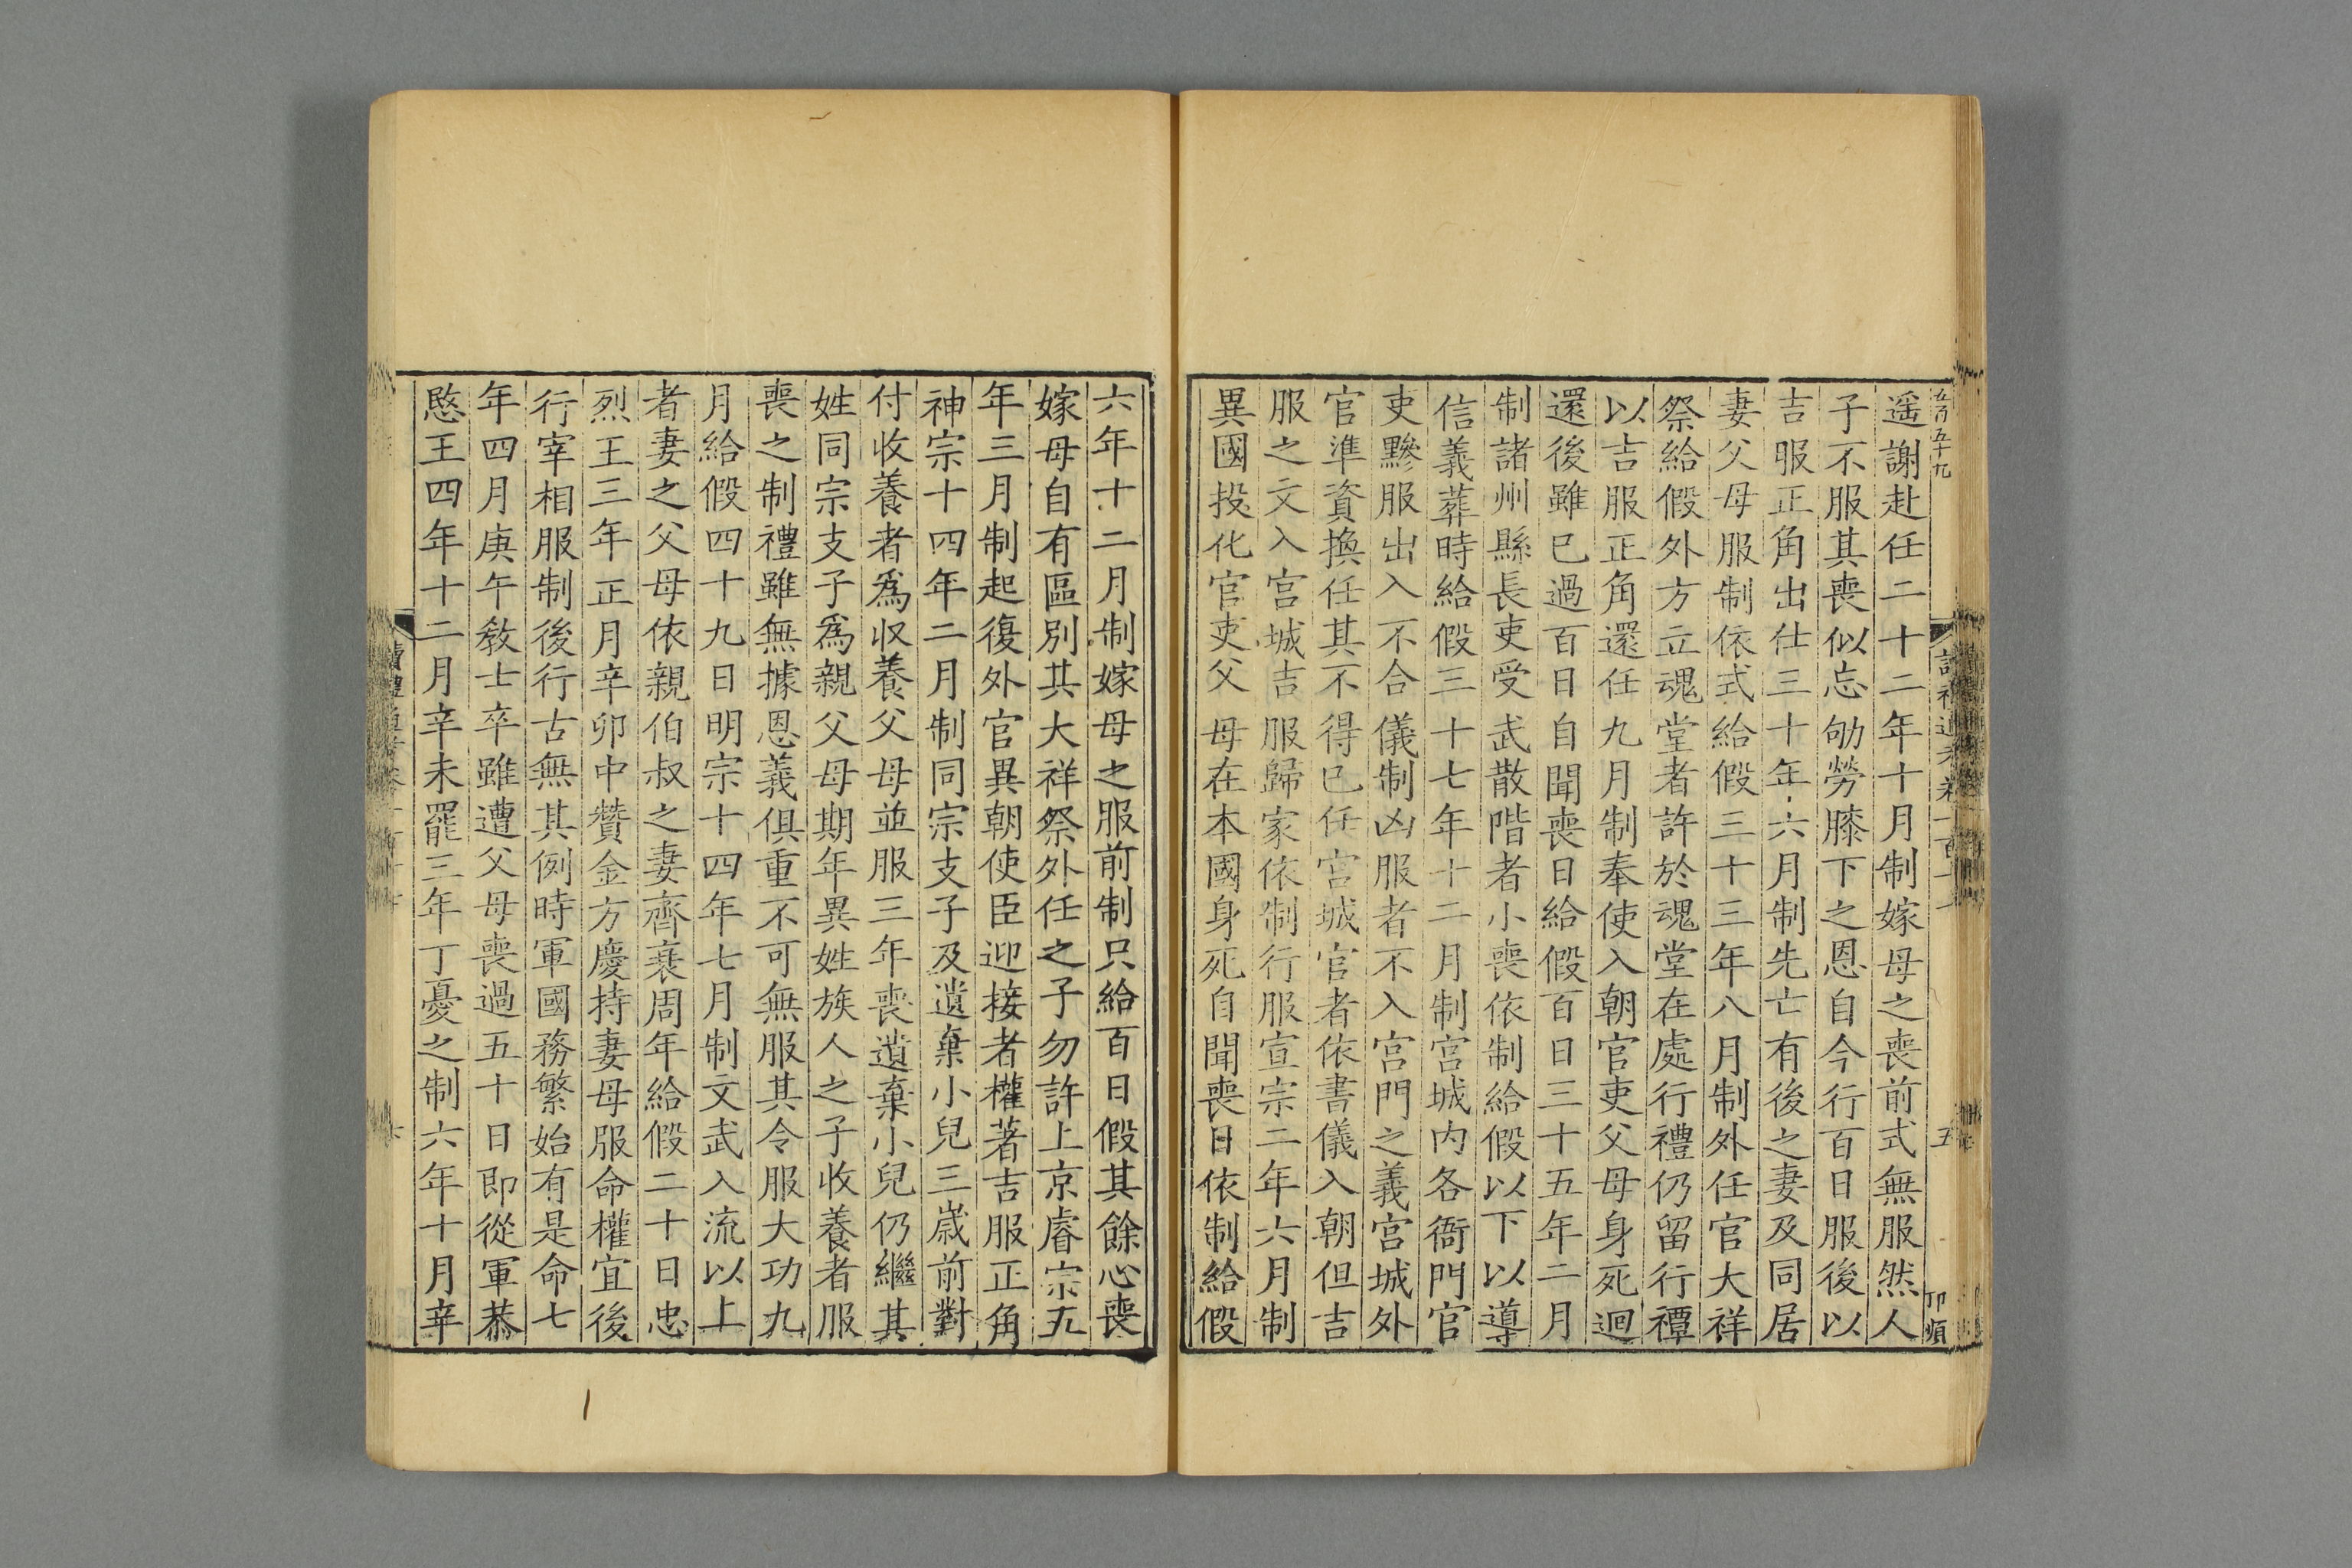 五百五十九
遥謝赴任二十二年十月制嫁母之喪前式無服然人
子不服其喪似忘劬勞膝下之恩自今行百日服後以
吉服正角出仕三十年六月制先亡有後之妻及同居
妻父母服制依式給假三十三年八月制外任官大祥
祭給假外方立魂堂者許於魂堂在處行禮仍留行禫
以吉服正角還任九月制奉使入朝官吏父母身死迴
還後雖已過百日自聞喪日給假百日三十五年二月
制諸州縣長吏受武散階者小喪依制給假以下以導
信義葬時給假三十七年十二月制宮城內各衙門官
吏黲服出入不合儀制凶服者不入宮門之義宮城外
官準資換任其不得已任宮城官者依書儀入朝但吉
服之文入宮城吉服歸家依制行服宣宗二年六月制
異國投化官吏父母在本國身死自聞喪日依制給假
六年十二月制嫁母之服前制只給百日假其餘心喪
嫁母自有區別其大祥祭外任之子勿許上京睿宗五
年三月制起復外官異朝使臣迎接者權著吉服正角
神宗十四年二月制同宗支子及遺棄小兒三歲前對
付收養者爲収養父母並服三年喪遺棄小兒仍繼其
姓同宗支子爲親父母期年異姓族人之子收養者服
喪之制禮雖無據恩義俱重不可無服其令服大功九
月給假四十九日明宗十四年七月制文武入流以上
者妻之父母依親伯叔之妻齊衰周年給假二十日忠
烈王三年正月辛卯中贊金方慶持妻母服命權宜後
行宰相服制後行古無其例時軍國務繁始有是命七
年四月庚午敎士卒雖遭父母喪過五十日即從軍恭
愍王四年十二月辛未罷三年丁憂之制六年十月辛